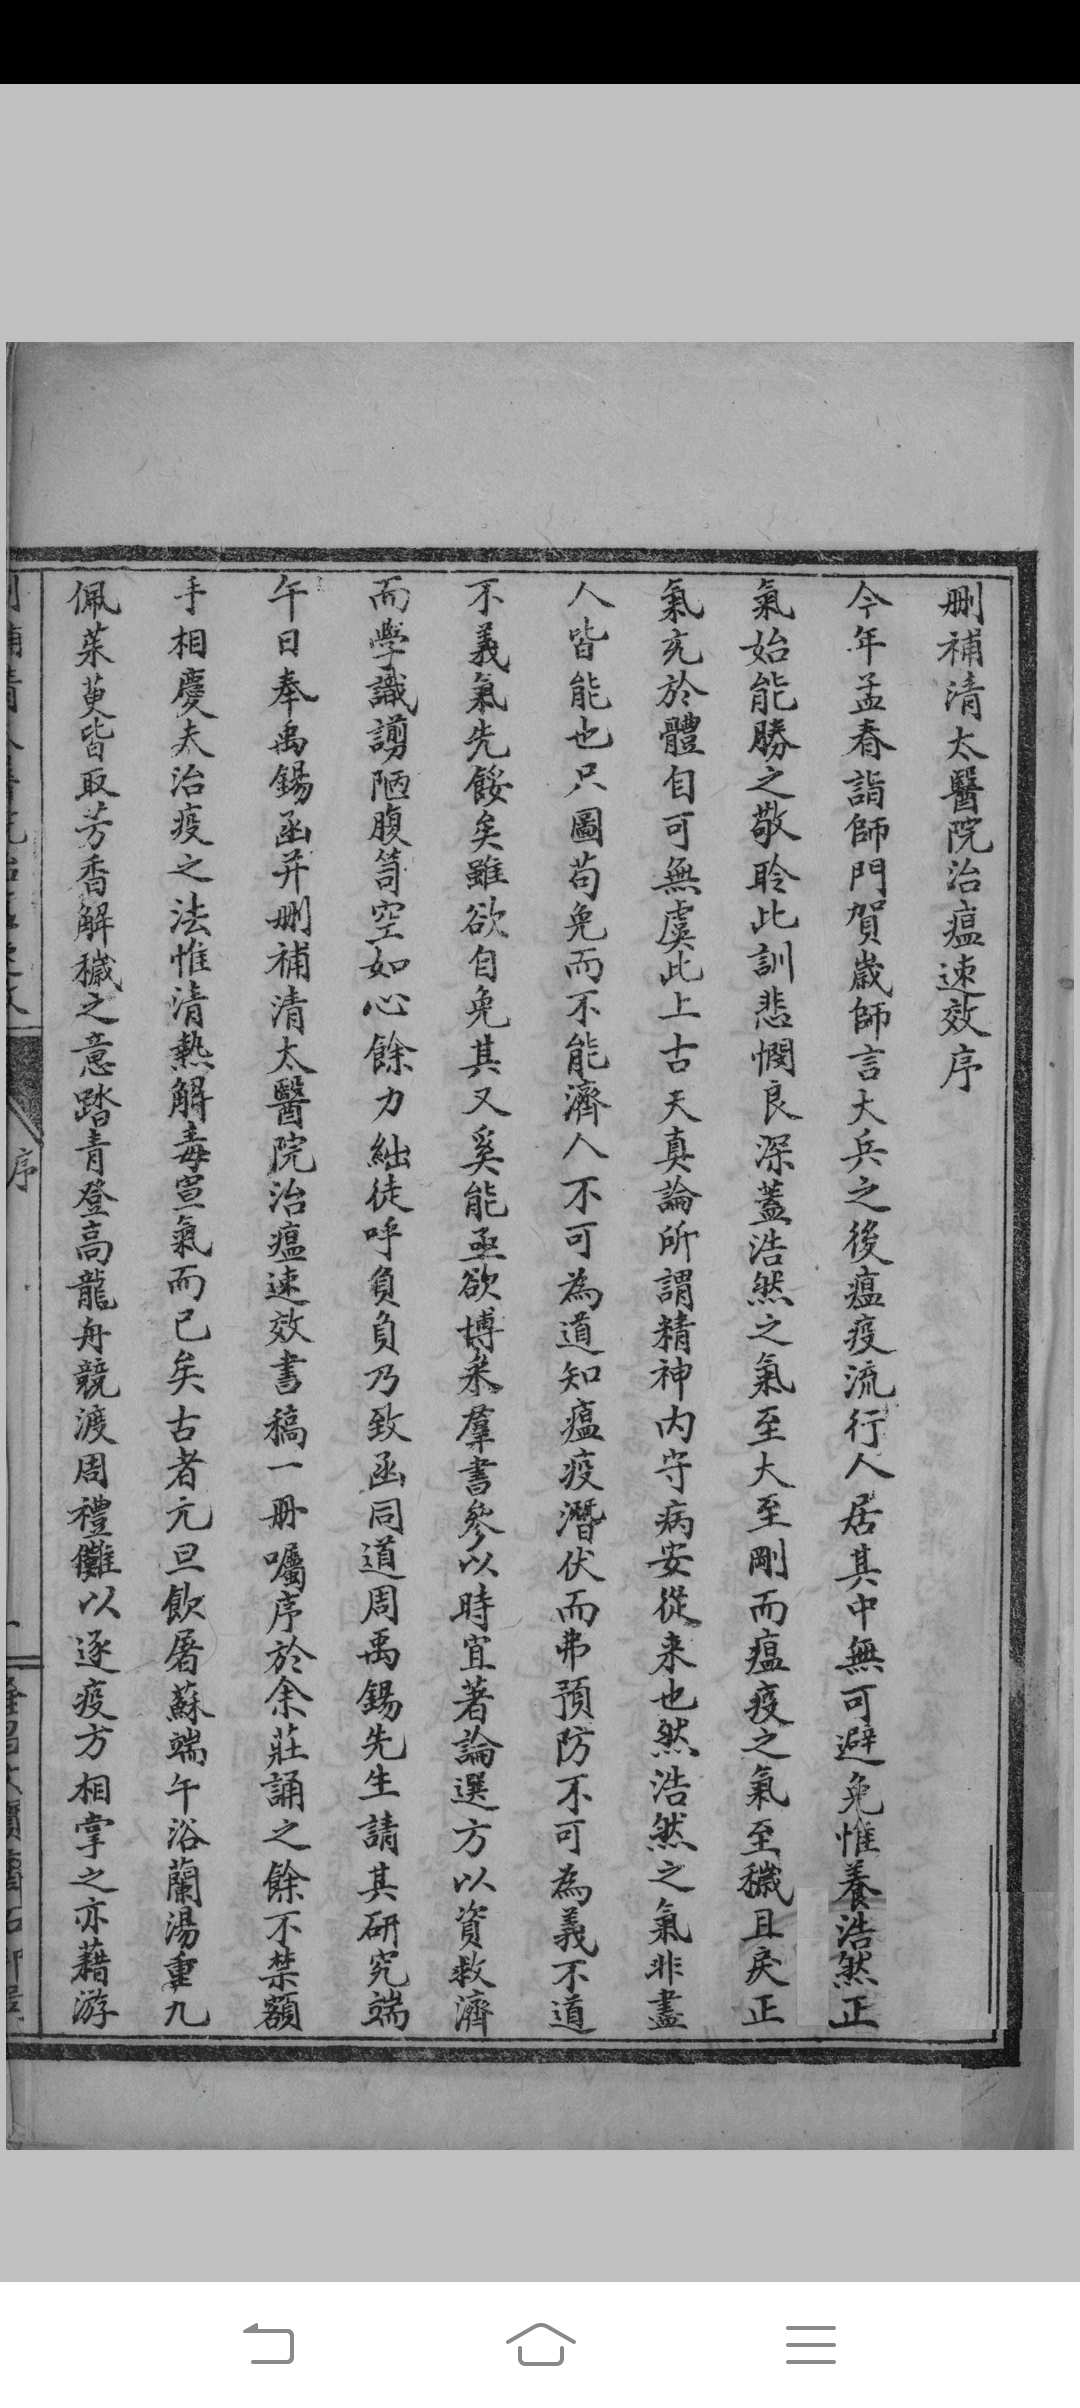 刪補清太醫院治瘟速效序
今年孟春詣師門賀歲師言大兵之後瘟疫流行人居其中無可避免惟養浩然正
氣始能勝之敬聆此訓悲憫良深蓋浩然之氣至大至剛而瘟疫之氣至穢且戾正
氣充於體自可無虞此上古天真論所謂精神內守病安從来也然浩然之氣非盡
人皆能也只圖苟免而不能濟人不可為道知瘟疫潛伏而弗預防不可為義不道
不義氣先餒矣雖欲自免其又奚能亟欲博采羣書參以時宜著論選方以資救濟
而學識謭陋腹笥空如心餘力絀徒呼負負乃致函同道周禹錫先生請其研究端
午日奉禹錫函并刪補清太醫院治瘟速效書稿一冊囑序於余莊誦之餘不禁額
手相慶夫治疫之法惟清熱解毒宣氣而已矣古者元旦飲屠蘇端午浴蘭湯重九
佩茱萸皆取芳香解穢之意踏青登高龍舟競渡周禮儺以逐疫方相掌之亦藉游
序